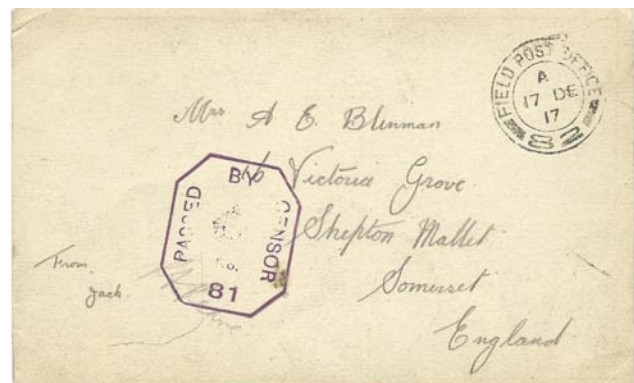 FIELD POST OFFICE
A
17 DE
17
82
Mrs A E. Blinman
Victoria Grove.
Shepton Mallet
Somerset
England
PASSED BY CENSOR
No.
81
From,
Jack.